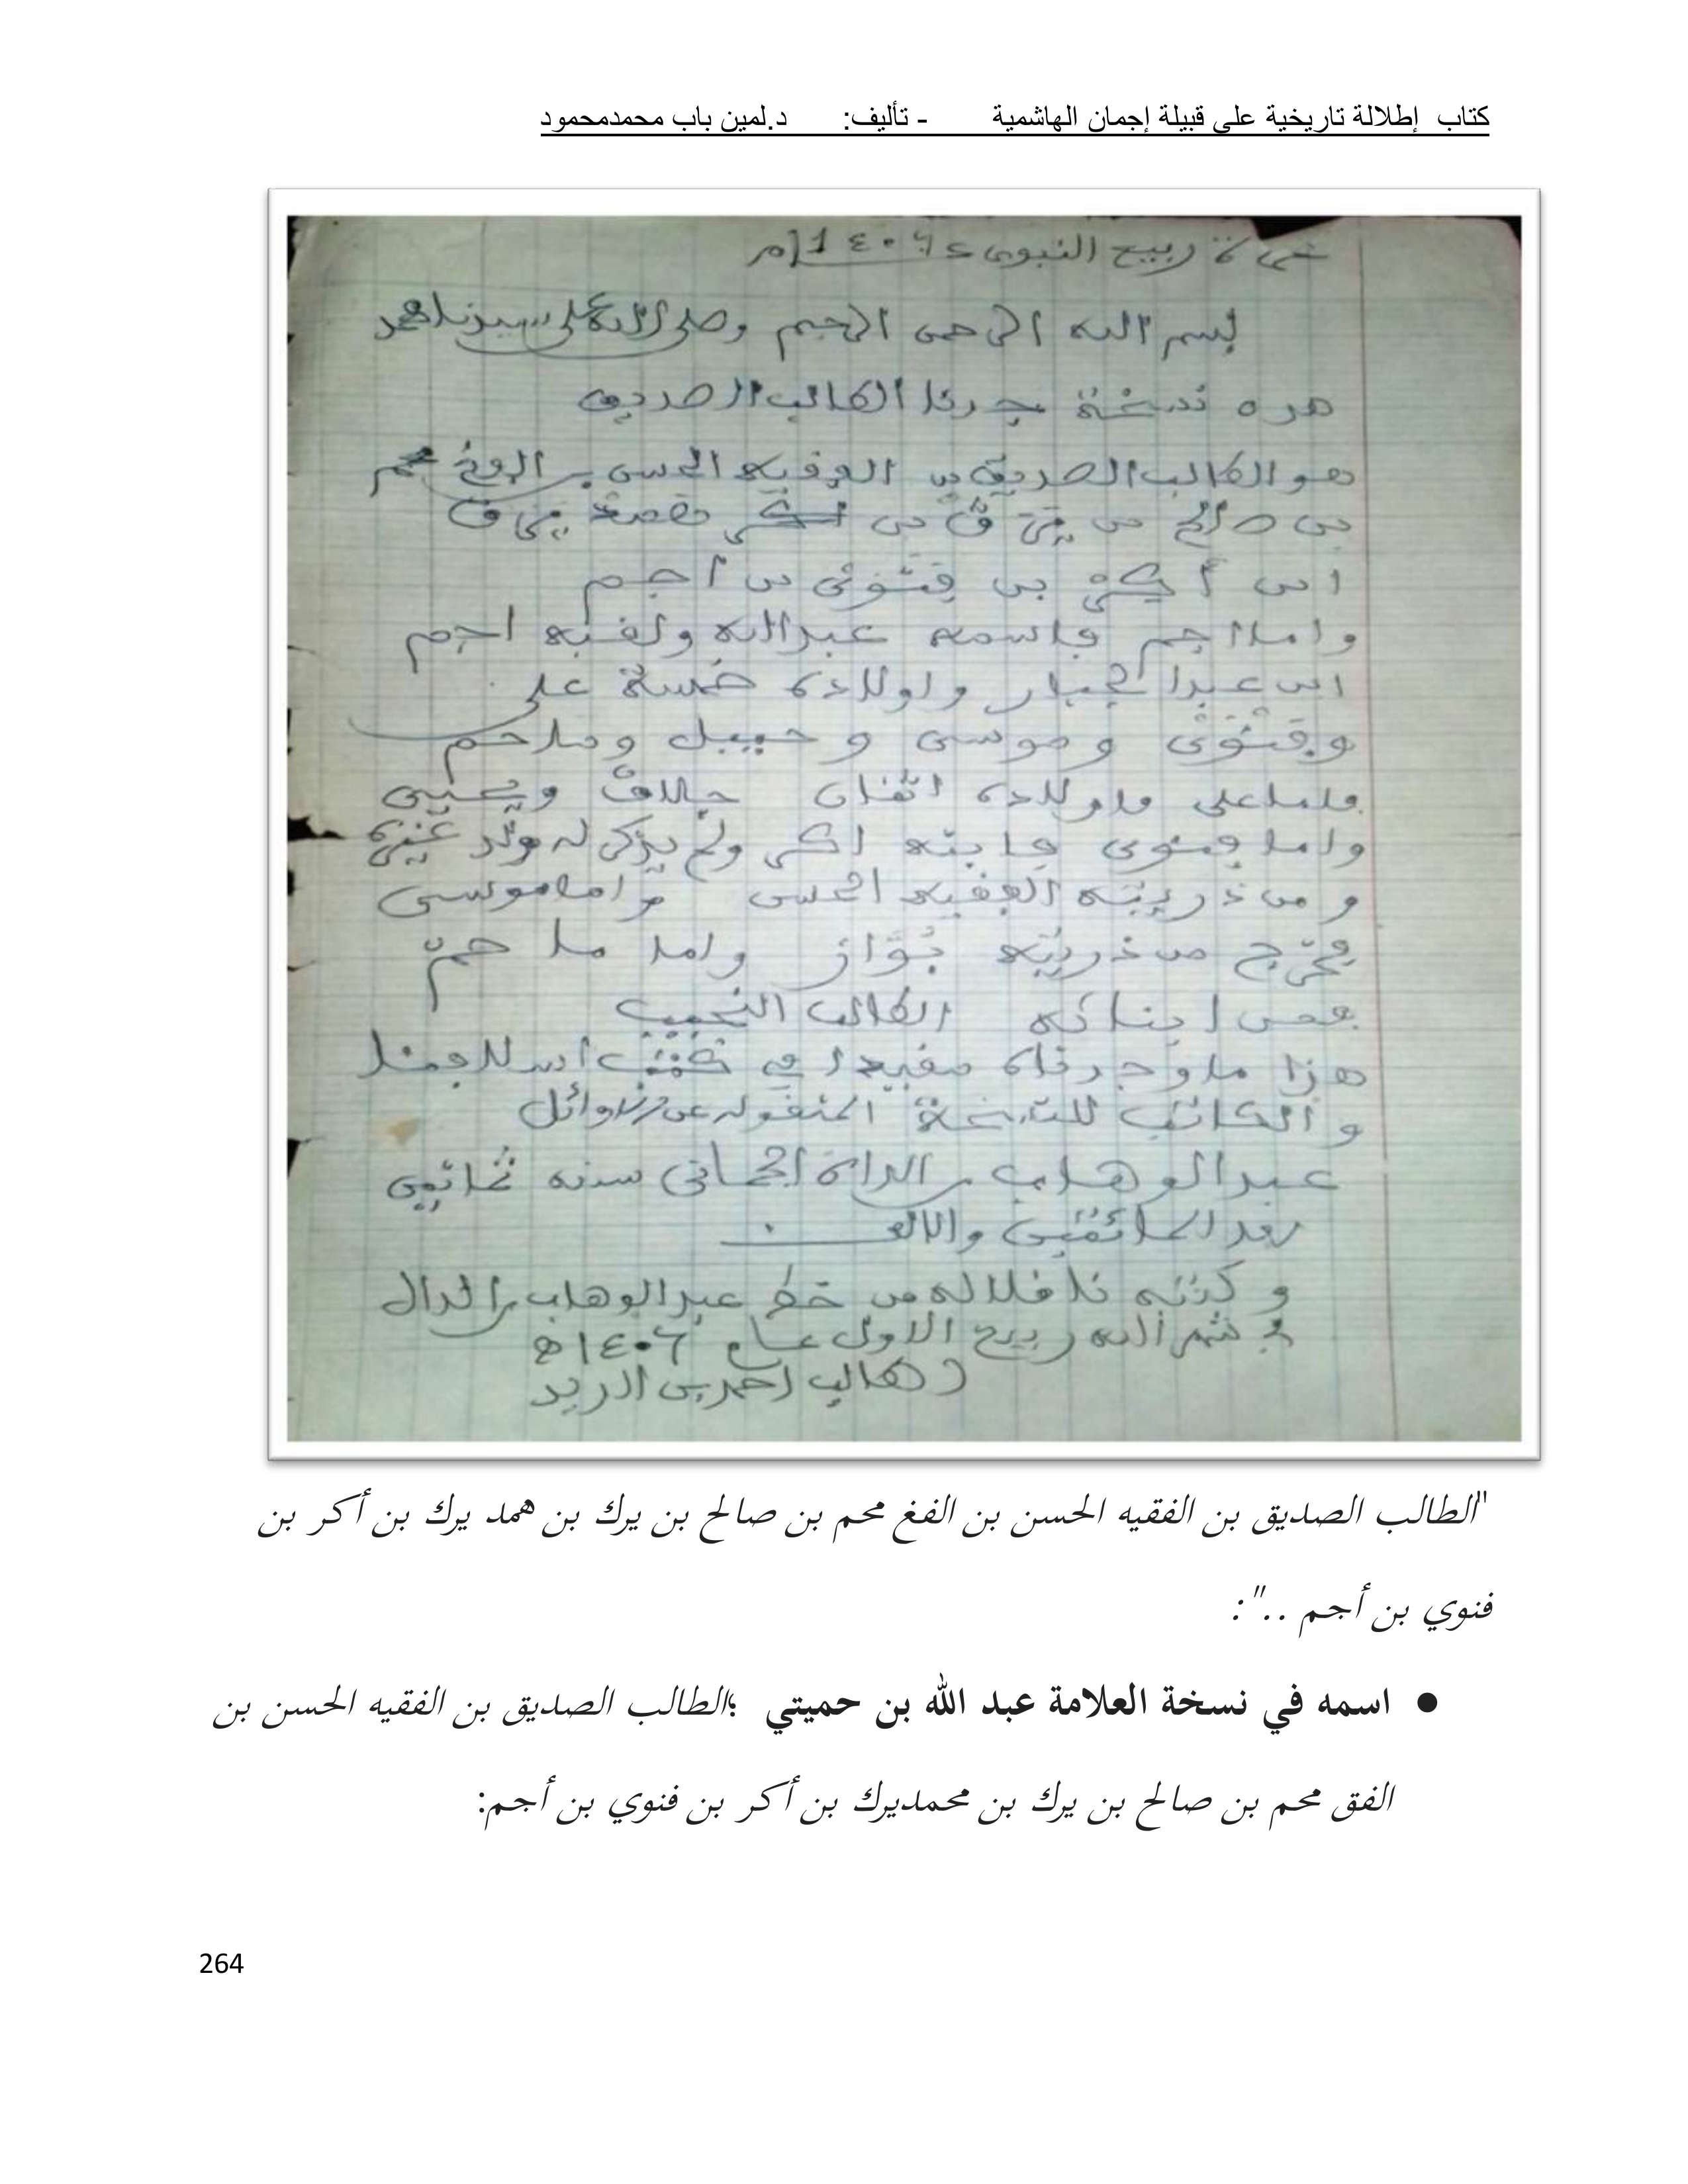 كتاب إطلالة تاريخية على قبيلة إجمان الهاشمية - تأليف: د.لمين باب محمدمحمود
غرة ربيع النبوى ١٤٠٦
بسم الله الرحمن الرحيم وصلى الله على سيدنا محمد
هذه نسخة جدنا الطالب الصديق
هو الطالب الصديق بن الفقيه الحسن بن الفغ محم
بن صالح بن يرك بن يرك
ابن أكر بن فنوى بن أجم
واما اجم فاسمه عبد الله ولقبه اجم
ابن عبد الجبار واولاده خمسة على
وفنوى وموسى و حبيبل وملاحم
فاما على فاولاده اثنان ويحيى
واما فنوى فابنه اكر ولم يذكر له ولد غيره
ومن ذريته الفقيه الحسن واما موسى
فخرج من ذريته بواز واما ملا حم
فمن ابنائه الطالب النجيب
هذا ما وجدناه مقيدا في كتب اسلافنا
والكاتب للنسخة المنقوله
عبد الوهاب سنه ثمانين
بعد المائتين والالف
وكتبه ناقلا له من خط عبد الوهاب
شهر الله ربيع الاول عام ١٤٠٦ه
طالب احمد بن
"الطالب الصديق بن الفقيه الحسن بن الفغ محم بن صالح بن يرك بن همد يرك بن أكر بن
فنوي بن أجم ..":
● اسمه في نسخة العلامة عبد الله بن حميتي ؛الطالب الصديق بن الفقيه الحسن بن
الفق محم بن صالح بن يرك بن محمديرك بن أكر بن فنوي بن أجم:
264